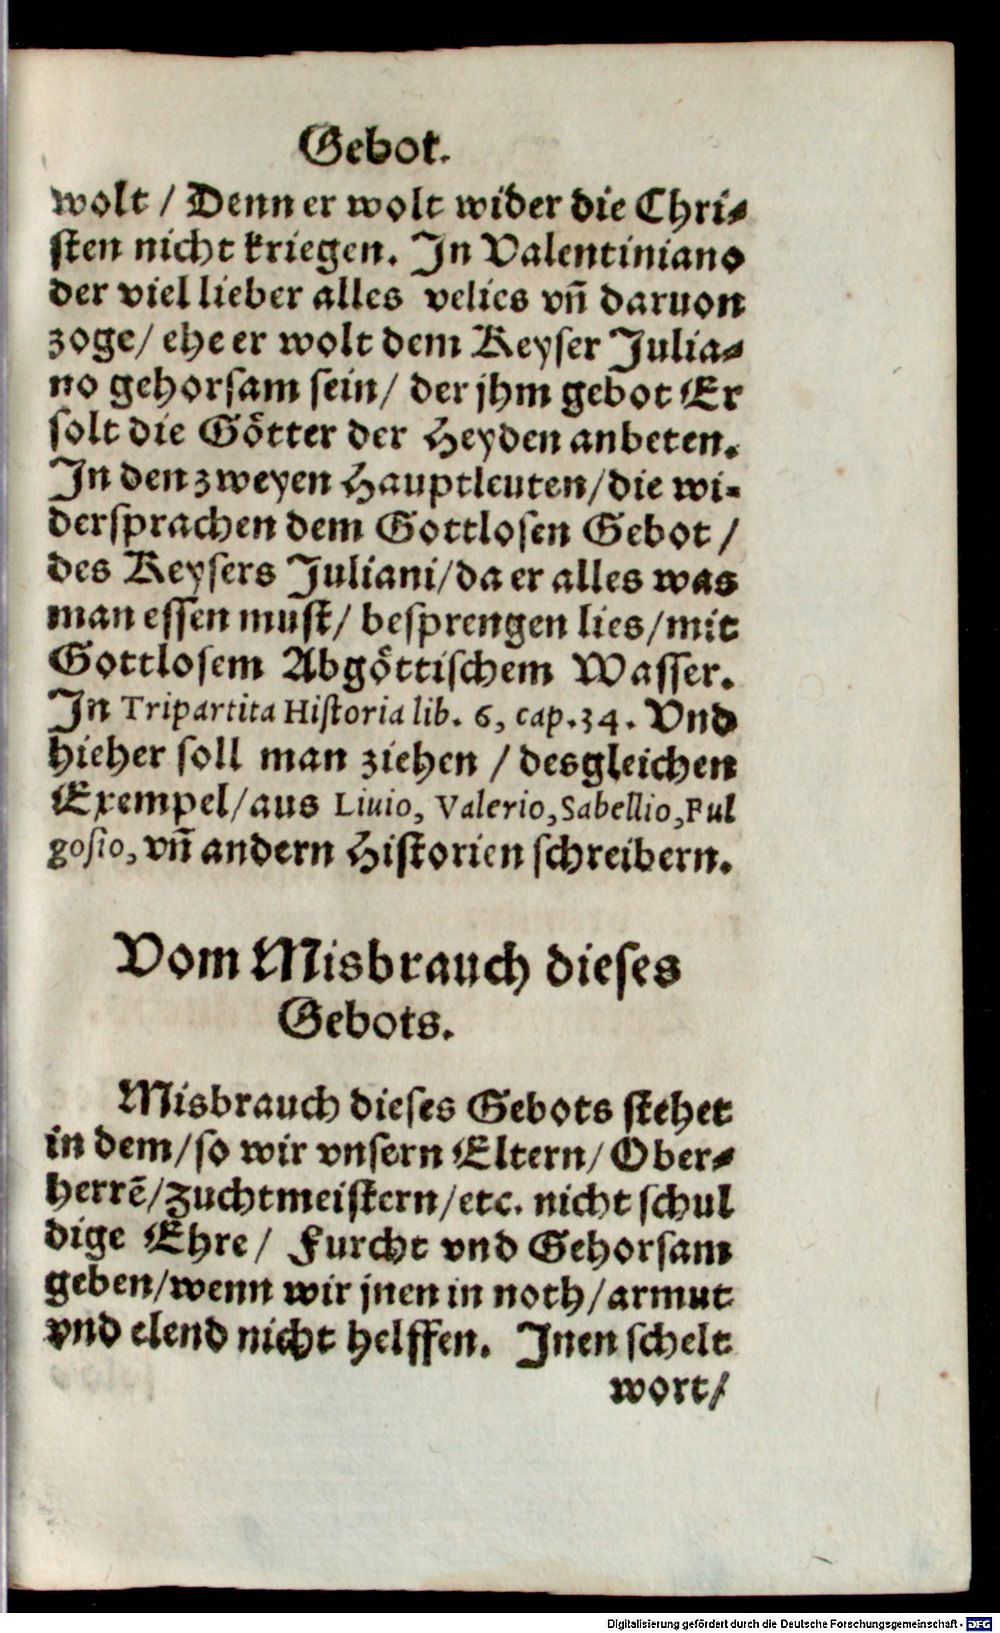 Gebot.
wolt / Denn er wolt wider die Chri⸗
sten nicht kriegen. In Valentiniano
der viel lieber alles velies vñ daruon
zoge/ ehe er wolt dem Keyser Julia⸗
no gehorsam sein/ der jhm gebot Er
solt die Götter der Heyden anbeten.
In den zweyen Hauptleuten/die wi⸗
dersprachen dem Gottlosen Gebot /
des Keysers Juliani/da er alles was
man essen must/ besprengen lies/mit
Gottlosem Abgöttischem Wasser.
In Tripartita Historia lib. 6, cap.34. Vnd
hieher soll man ziehen / desgleichen
Exempel/aus Liuio, Valerio,Sabellio,Ful
gosio, vñ andern Historien schreibern.
Vom Misbrauch dieses
Gebots.
Misbrauch dieses Gebots stehet
in dem/so wir vnsern Eltern/ Ober⸗
herrē/zuchtmeistern/etc. nicht schul
dige Ehre/ Furcht vnd Gehorsam
geben/wenn wir jnen in noth/armut
vnd elend nicht helffen. Jnen schelt
wort/
Digitalisierung gefördert durch die Deutsche Forschungsgemeinschaft - DFG